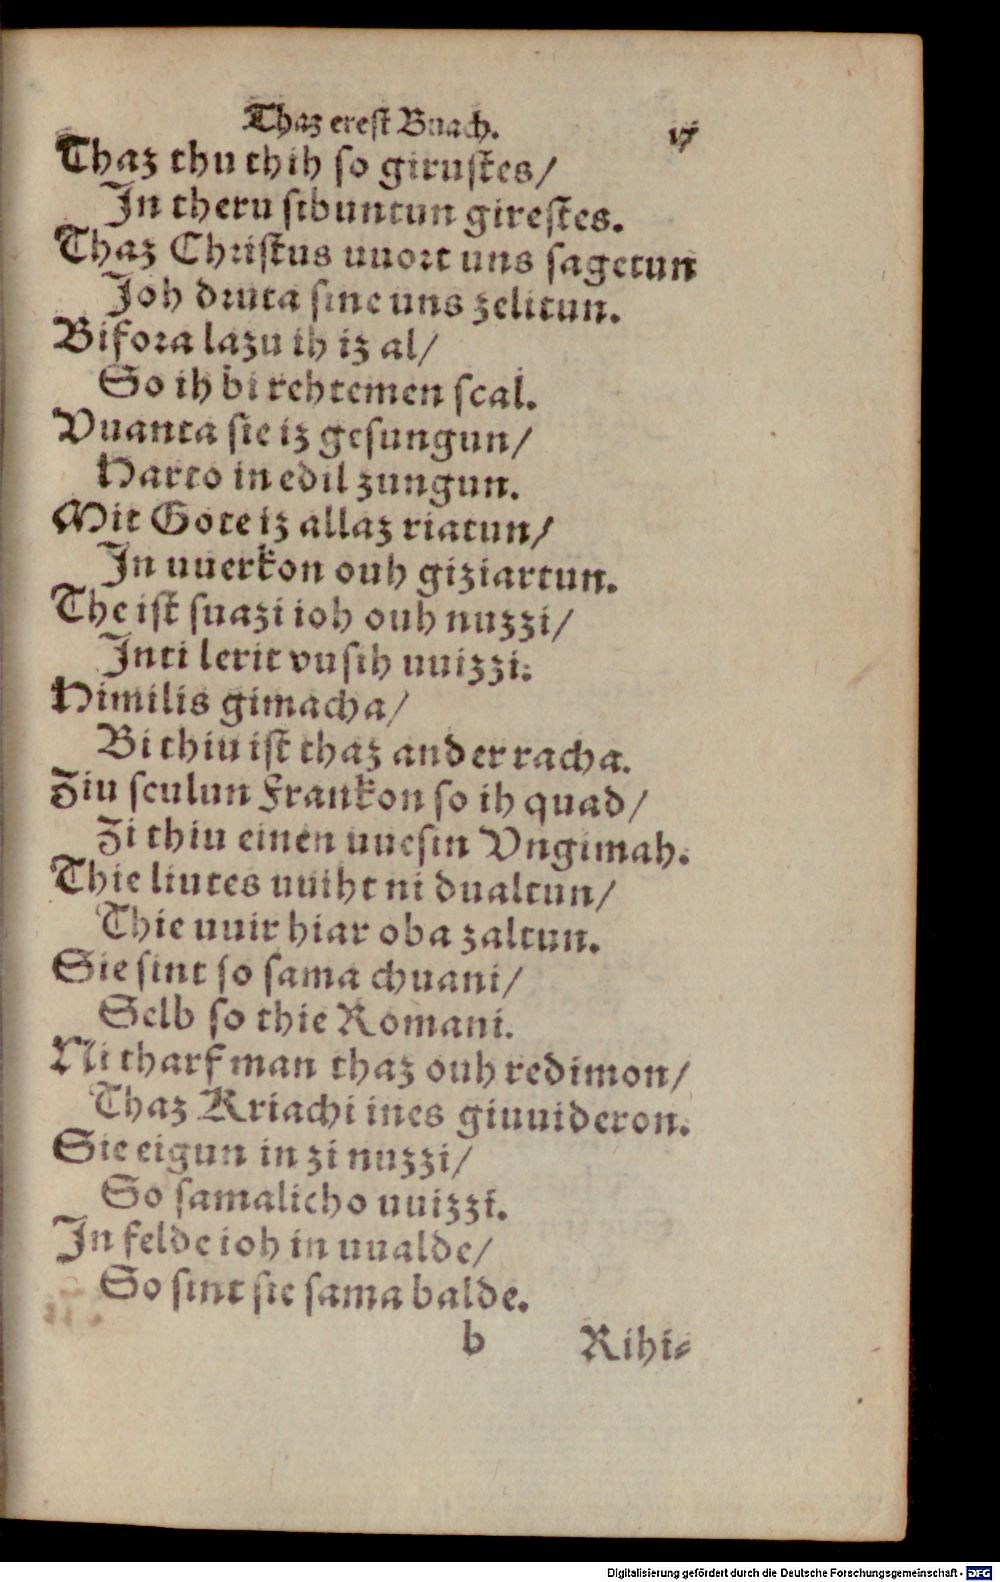 Thaz erest Buach. 17
Thaz thu thih so girustes/
In theru sibuntun girestes.
Thaz Christus uuort uns sagetun
Joh druta sine uns zelitun.
Bifora lazu ih iz al/
So ih bi rehtemen scal.
Vuanta sie iz gesungun/
Harto in edil zungun.
Mit Gote iz allaz riatun/
In uuerkon ouh giziartun.
The ist suazi ioh ouh nuzzi/
Inti lerit vnsih uuizzi.
Himilis gimacha/
Bi thiu ist thaz ander racha.
Ziu sculun Frankon so ih quad/
Zi thiu einen uuesin Vngimah.
Thie liutes uuiht ni dualtun/
Thie uuir hiar oba zaltun.
Sie sint so sama chuani/
Selb so thie Romani.
Ni tharf man thaz ouh redimon/
Thaz Kriachi ines giuuideron.
Sie eigun in zi nuzzi/
So samalicho uuizzi.
In felde ioh in uualde/
So sint sie sama balde.
b Rihi-
Digitalisierung gefördert durch die Deutsche Forschungsgemeinschaft - DFG